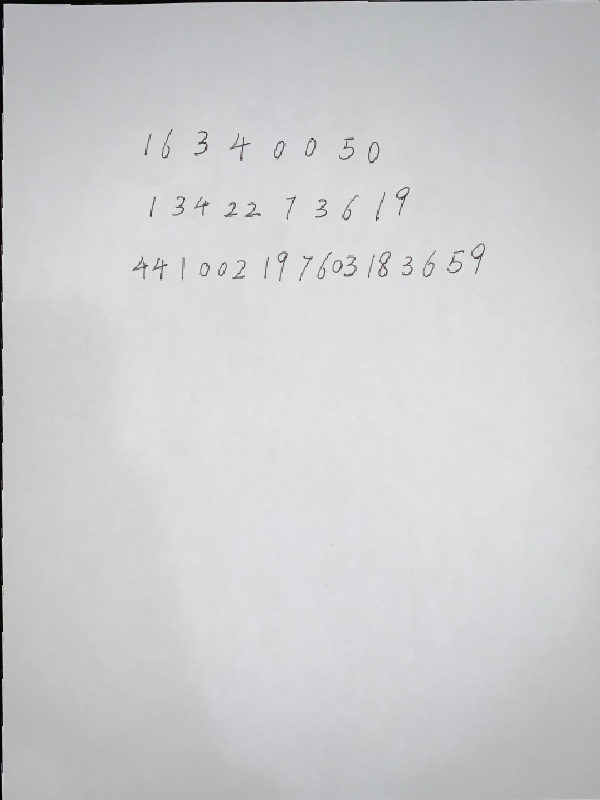 16 3 4 0 0 50
1 34 22 7 3 6 19
441002 197603183659